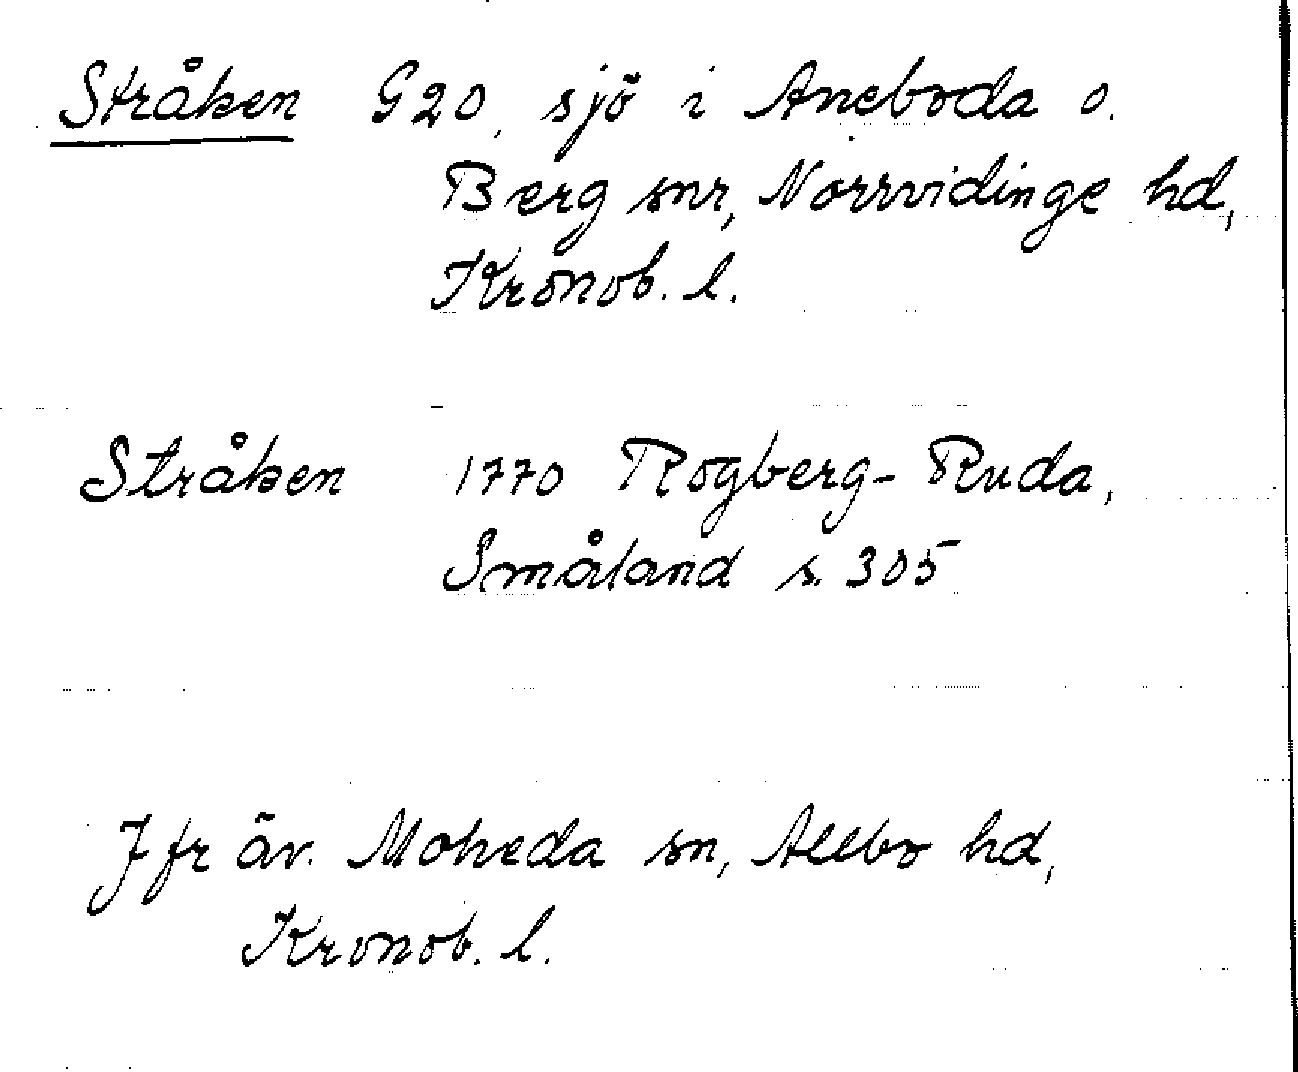 Stråken G20, sjö i Aneboda o.
Berg snr, Norrvidinge hd,
Kronob. l.
Stråken 1770 Rogberg-Ruda,
Småland s. 305
Jfr äv. Moheda sn, Allbo hd,
Kronob. l.